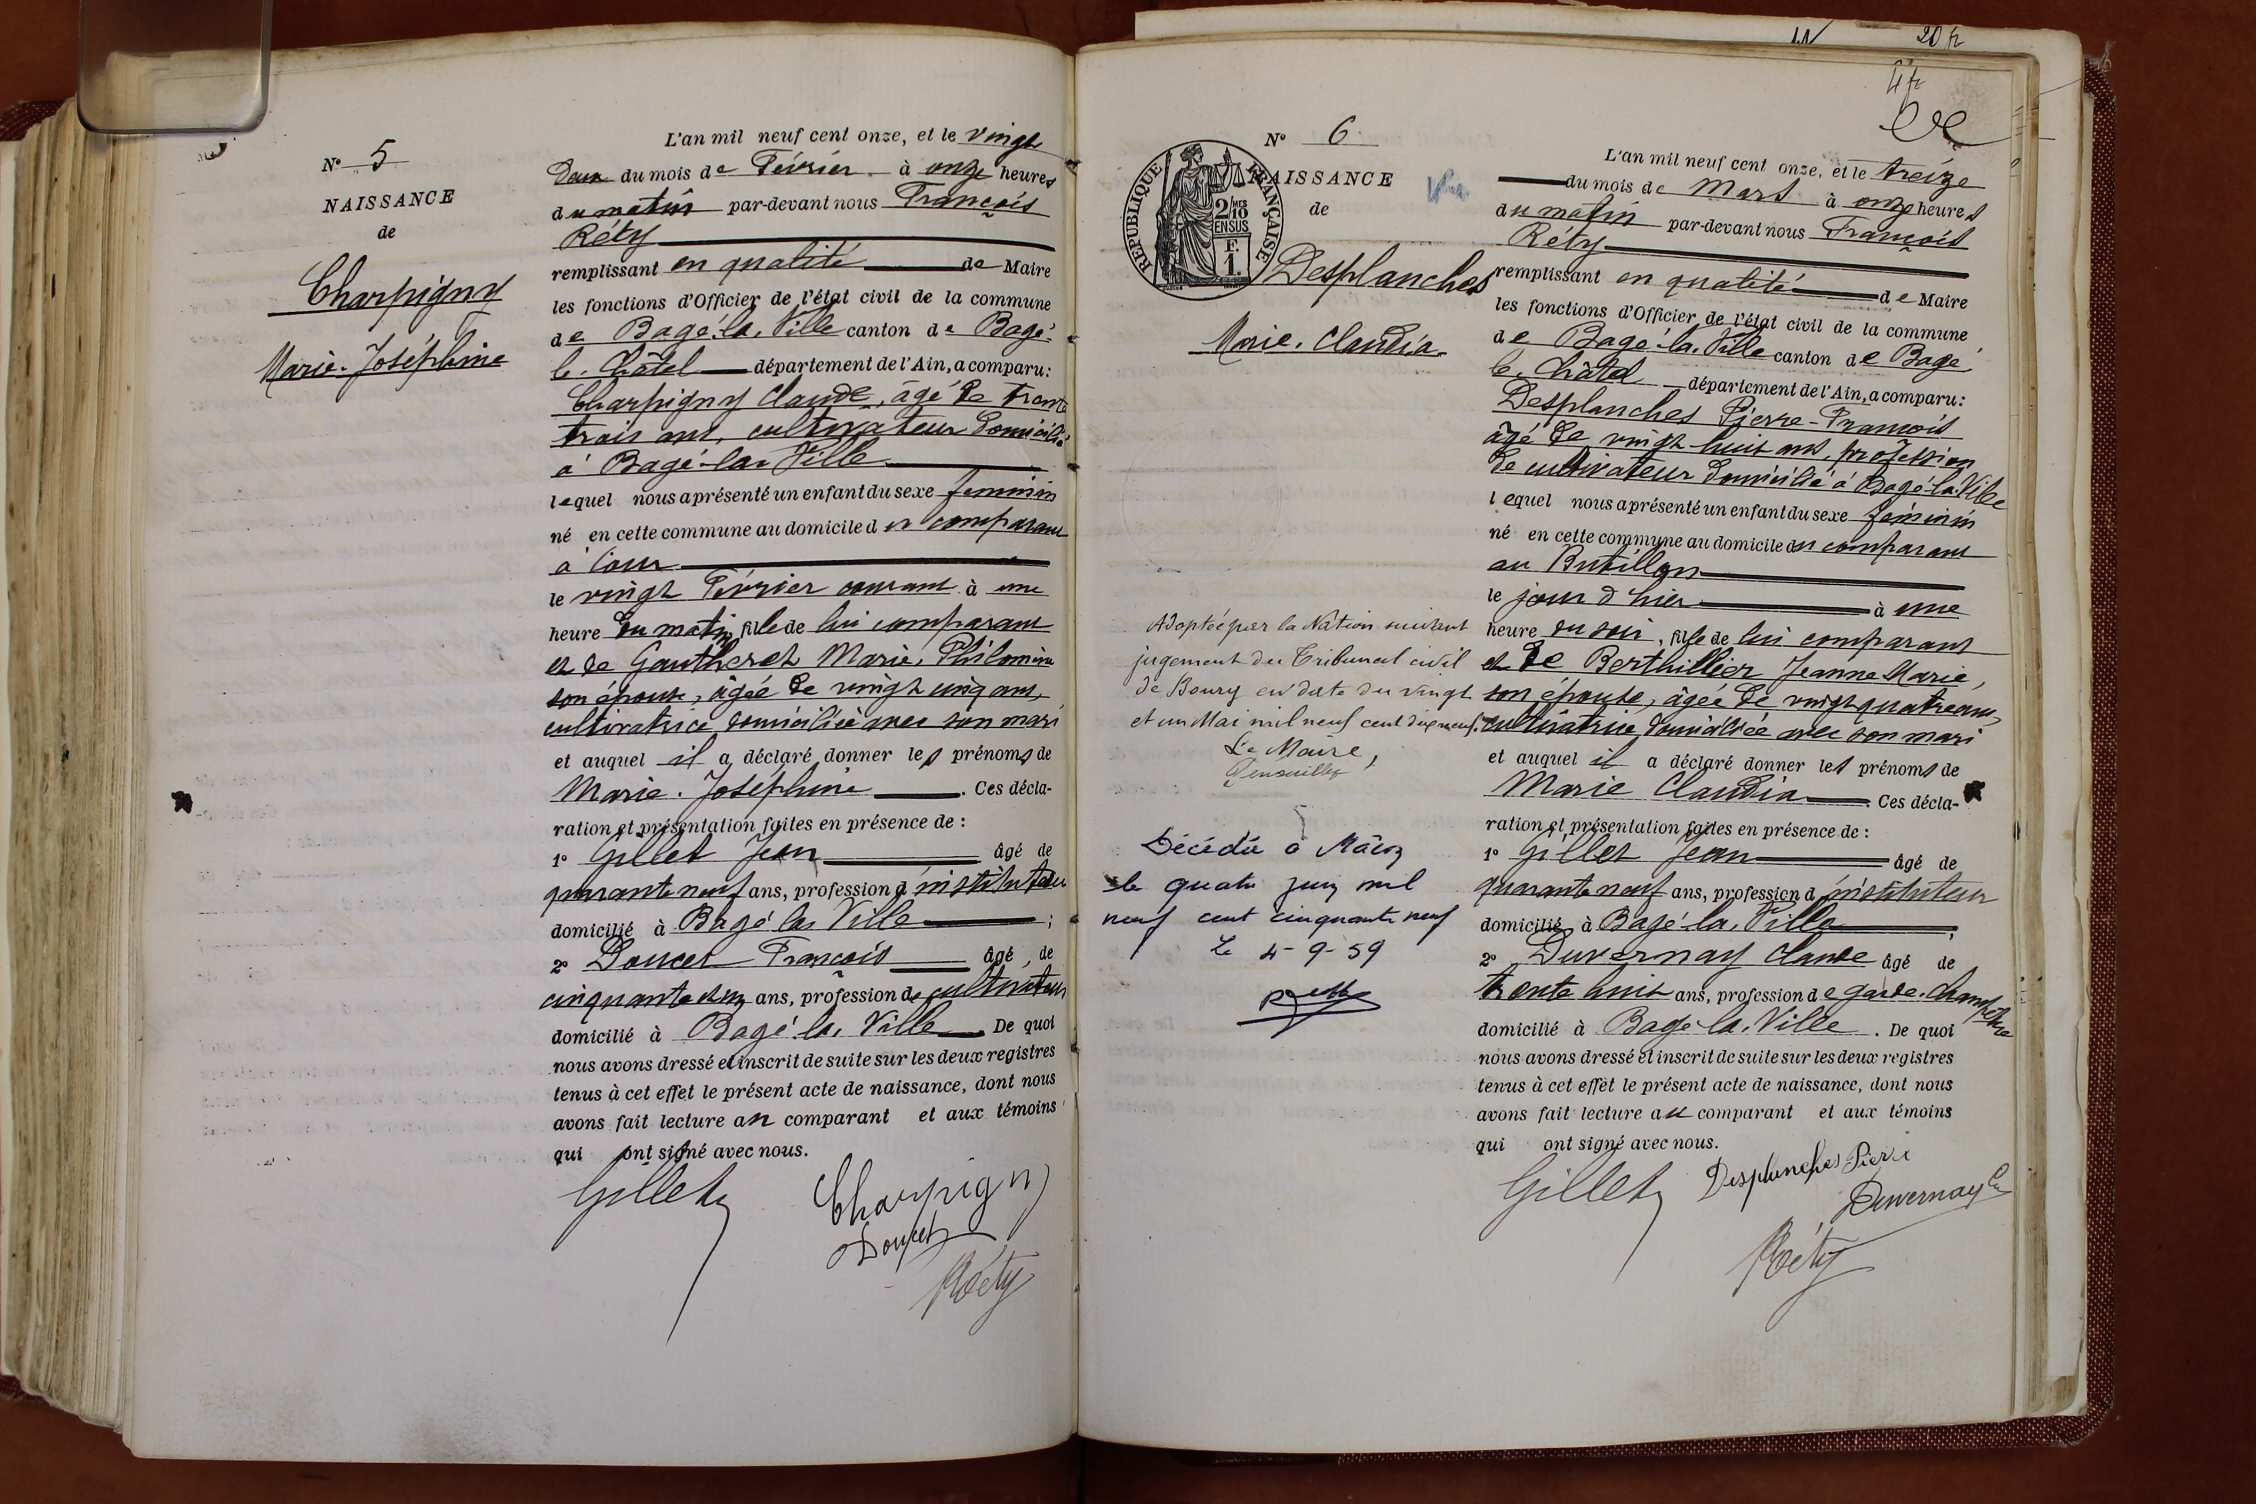 N° 5
NAISSANCE
de
Charpigny
Marie-Joséphine
L'an mil neuf cent onze, et le vingt
deux du mois de Février à onze heures
du matin par-devant nous François
Réty
remplissant en qualité de Maire
les fonctions d'Officier de l'état civil de la commune
de Bagé-la-Ville canton de Bagé-
le-Châtel département de l'Ain, a comparu:
Charpigny Claude, âgé de trente
trois ans, cultivateur domicilié
à Bagé-la-Ville
lequel nous a présenté un enfant du sexe féminin
né en cette commune au domicile du comparant
à
le vingt Février courant à une
heure du matin, fille de lui comparant
et de Gautheret Marie, Philomène
son épouse, âgée de vingt cinq ans,
cultivatrice domiciliée avec son mari
et auquel il a déclaré donner les prénoms de
Marie-Joséphine. Ces décla-
ration et présentation faites en présence de :
1° Gillet Jean âgé de
quarante neuf ans, profession d'instituteur
domicilié à Bagé la Ville ;
2° Doucet François âgé de
cinquante ans, profession de cultivateur
domicilié à Bagé-la-Ville. De quoi
nous avons dressé et inscrit de suite sur les deux registres
tenus à cet effet le présent acte de naissance, dont nous
avons fait lecture au comparant et aux témoins
qui ont signé avec nous.
Gillet Charpigny
Doucet
Réty
20 fr
4 fr
N° 6
NAISSANCE
de
RÉPUBLIQUE FRANÇAISE
2/10 MES
EN SUS
F.
1.
Desplanches
Marie-Claudia
Adoptée par la Nation suivant
jugement du Tribunal civil
de Bourg en date du vingt
et un Mai mil neuf cent dix neuf.
Le Maire,
Décédée à Mâcon
le quatre juin mil
neuf cent cinquante neuf
Le 4-9-59
L'an mil neuf cent onze, et le treize
du mois de Mars à onze heures
du matin par-devant nous François
Réty
remplissant en qualité de Maire
les fonctions d'Officier de l'état civil de la commune
de Bagé-la-Ville canton de Bagé
le-Châtel département de l'Ain, a comparu:
Desplanches Pierre-François
âgé de vingt-huit ans, profession
de cultivateur domicilié à Bagé-la-Ville
lequel nous a présenté un enfant du sexe féminin
né en cette commune au domicile du comparant
au Butillon
le jour d'hier à une
heure du soir, fille de lui comparant
et de Berthillier Jeanne Marie,
son épouse, âgée de vingt quatre ans,
cultivatrice, domiciliée avec son mari
et auquel il a déclaré donner les prénoms de
Marie Claudia. Ces décla-
ration et présentation faites en présence de :
1° Gillet Jean âgé de
quarante neuf ans, profession d'instituteur
domicilié à Bagé-la-Ville ;
2° Duvernay Claude âgé de
trente huit ans, profession de garde-champêtre
domicilié à Bagé-la-Ville. De quoi
nous avons dressé et inscrit de suite sur les deux registres
tenus à cet effet le présent acte de naissance, dont nous
avons fait lecture au comparant et aux témoins
qui ont signé avec nous.
Gillet Desplanches Pierre
Duvernay Cl
Réty